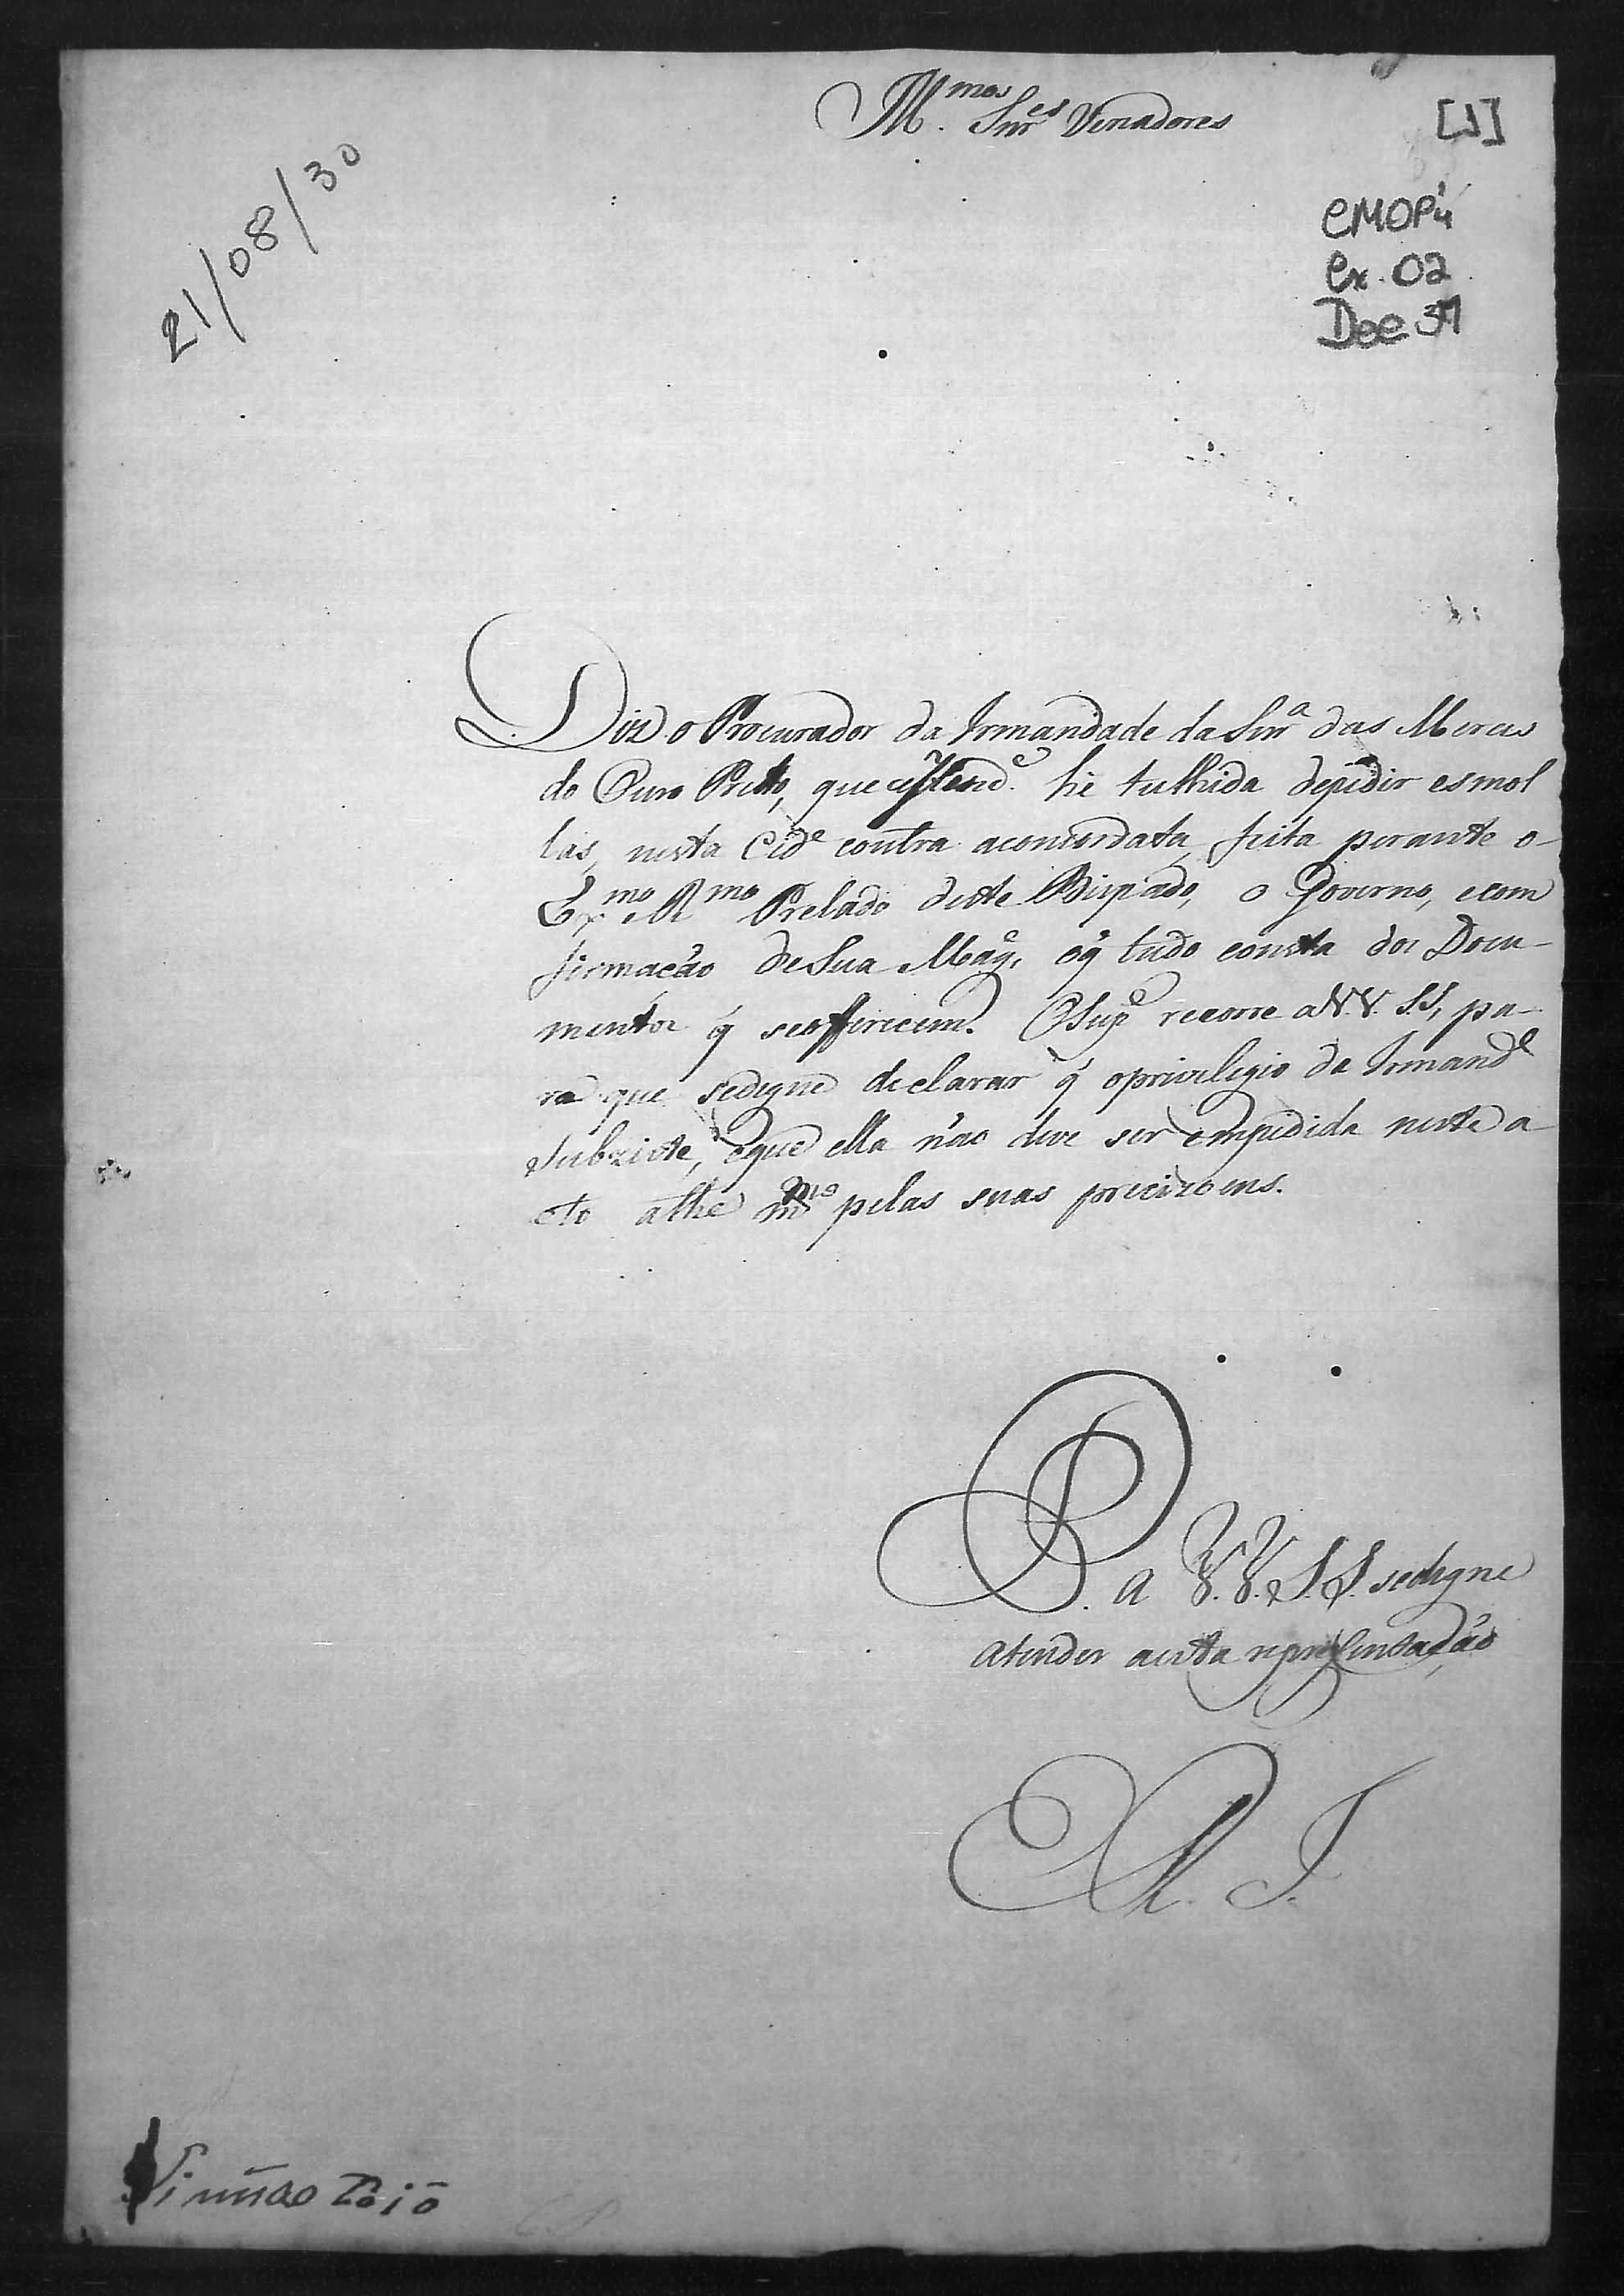 M.mos Snr.es Veriadores
[1]
21/08/30
CMOP
Cx. 02
Doc 37
Diz o Procurador da Irmandade da Snr.a das Merces
do Ouro Preto, que he tulhida depedir esmol
las, nesta Cid.e contra aconcordata feita perante o
Ex.mo R.mo Prelado deste Bispado, o Governo, ecom
firmação deSua Mag.e, oq̃ tudo consta dos Docu-
mentos q̃ seofferecem. OSup.e recorre aV.V. S.S, pa-
ra que sedigne declarar q̃ oprivilegio da Irmand.e
subziste, eque ella não deve ser empedida neste a
cto athe m.mo pelas suas precizoens.
P. a V.V. S.S. sedigne
atender aesta representação
E. R. M.